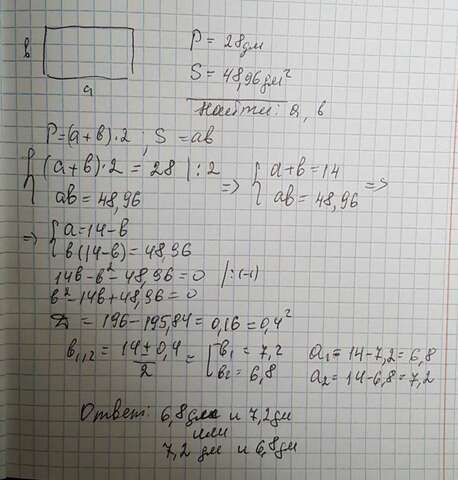 в
а
P = 28дм
S = 48,96 дм²
Найти: а, в
P=(а+в)·2 ; S = ав
{(а+в)·2 = 28 |:2 => {а+в=14 =>
ав = 48,96 ав = 48,96
=> {а=14-в
в(14-в)=48,96
14в-в²-48,96=0 |:(-1)
в²-14в+48,96=0
Д = 196-195,84=0,16=0,4²
в₁,₂ = (14±0,4)/2 = [в₁ = 7,2 а₁=14-7,2=6,8
в₂ = 6,8 а₂=14-6,8=7,2
Ответ: 6,8дм и 7,2дм
или
7,2 дм и 6,8дм